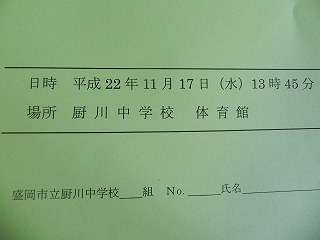 日時 平成22年11月17日（水）13時45分
場所 厨川中学校 体育館
盛岡市立厨川中学校＿＿組 No.＿＿＿氏名＿＿＿＿＿＿